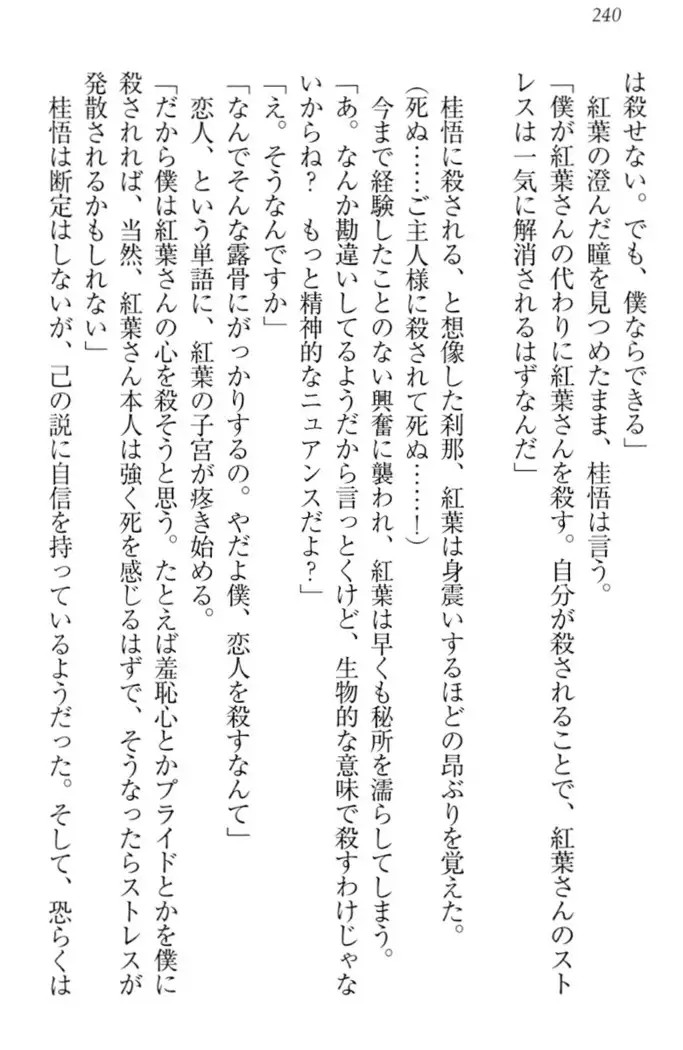 240
は殺せない。でも、僕ならできる」
　紅葉の澄んだ瞳を見つめたまま、桂悟は言う。
「僕が紅葉さんの代わりに紅葉さんを殺す。自分が殺されることで、紅葉さんのスト
レスは一気に解消されるはずなんだ」
　桂悟に殺される、と想像した刹那、紅葉は身震いするほどの昂ぶりを覚えた。
(死ぬ……ご主人様に殺されて死ぬ……！)
　今まで経験したことのない興奮に襲われ、紅葉は早くも秘所を濡らしてしまう。
「あ。なんか勘違いしてるようだから言っとくけど、生物的な意味で殺すわけじゃな
いからね？　もっと精神的なニュアンスだよ？」
「え。そうなんですか」
「なんでそんな露骨にがっかりするの。やだよ僕、恋人を殺すなんて」
　恋人、という単語に、紅葉の子宮が疼き始める。
「だから僕は紅葉さんの心を殺そうと思う。たとえば羞恥心とかプライドとかを僕に
殺されれば、当然、紅葉さん本人は強く死を感じるはずで、そうなったらストレスが
発散されるかもしれない」
　桂悟は断定はしないが、己の説に自信を持っているようだった。そして、恐らくは